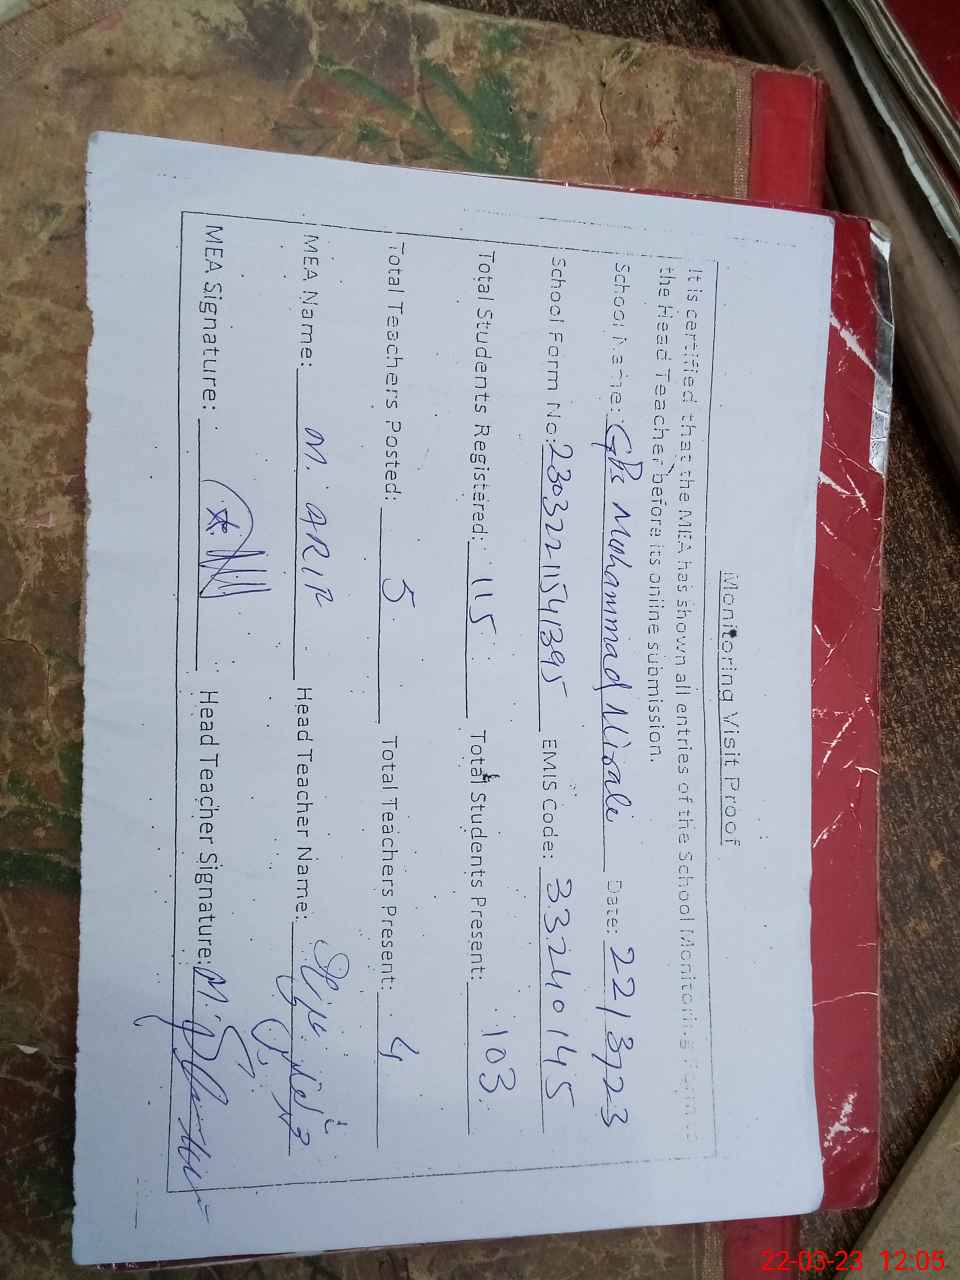 Monitoring Visit Proof
It is certified that the MEA has shown all entries of the School Monitoring Form to
the Head Teacher before its online submission.
School Name: GPS Mohammad Mirali Date: 22/3/23
School Form No: 23032211541395 EMIS Code: 33240145
Total Students Registered: 115 Total Students Present: 103
Total Teachers Posted: 5 Total Teachers Present: 4
MEA Name: M. ARIF Head Teacher Name:
MEA Signature: Head Teacher Signature: M.
22-03-23 12:05